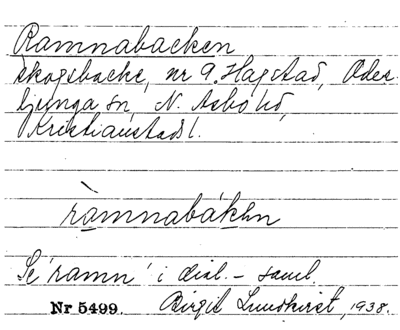 Ramnabacken
skogsbacke, nr 9. Hagstad, Odes-
ljunga sn, N. Åsbo hd,
Kristianstads l.
ràmnabákən
Se 'ramn' i dial.- saml.
Nr 5499. Birgit Lundkvist, 1938.